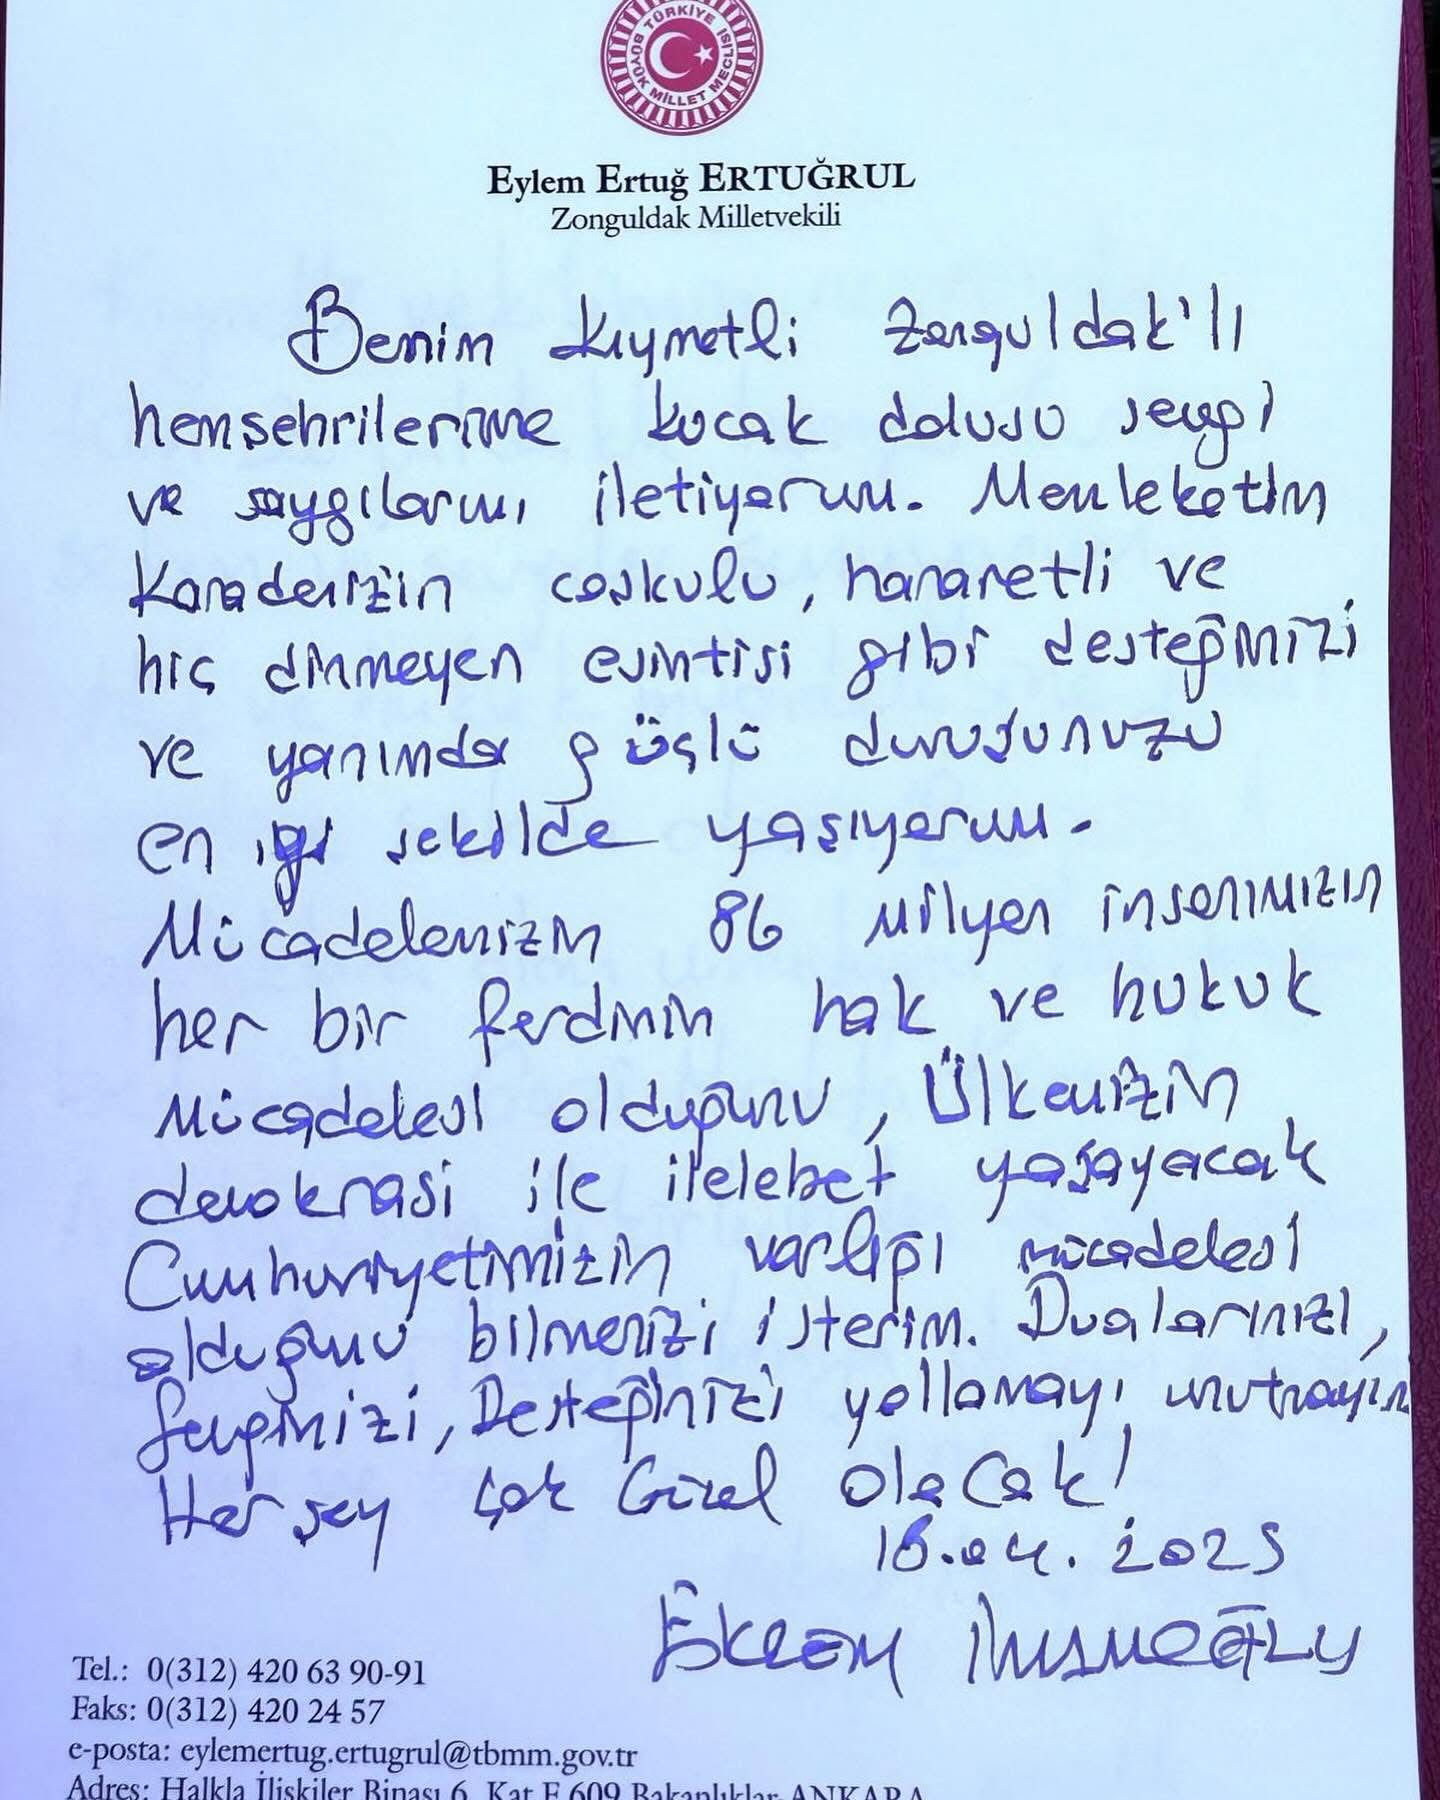 TÜRKİYE BÜYÜK MİLLET MECLİSİ
Eylem Ertuğ ERTUĞRUL
Zonguldak Milletvekili
Benim kıymetli Zonguldak'lı
hemşehrilerime kucak dolusu sevgi
ve saygılarımı iletiyorum. Memleketim
Karadeniz'in coşkulu, hararetli ve
hiç dinmeyen esintisi gibi desteğinizi
ve yanımda güçlü duruşunuzu
en iyi şekilde yaşıyorum.
Mücadelemizin 86 milyon insanımızın
her bir ferdinin hak ve hukuk
mücadelesi olduğunu, Ülkemizin
demokrasi ile ilelebet yaşayacak
Cumhuriyetimizin varlığı mücadelesi
olduğunu bilmenizi isterim. Dualarınızı,
Sevginizi, Desteğinizi yollamayı unutmayın
Herşey çok Güzel Olacak!
16.04.2025
Ekrem İmamoğlu
Tel.: 0(312) 420 63 90-91
Faks: 0(312) 420 24 57
e-posta: eylemertug.ertugrul@tbmm.gov.tr
Adres: Halkla İlişkiler Binası 6. Kat F 609 Bakanlıklar-ANKARA